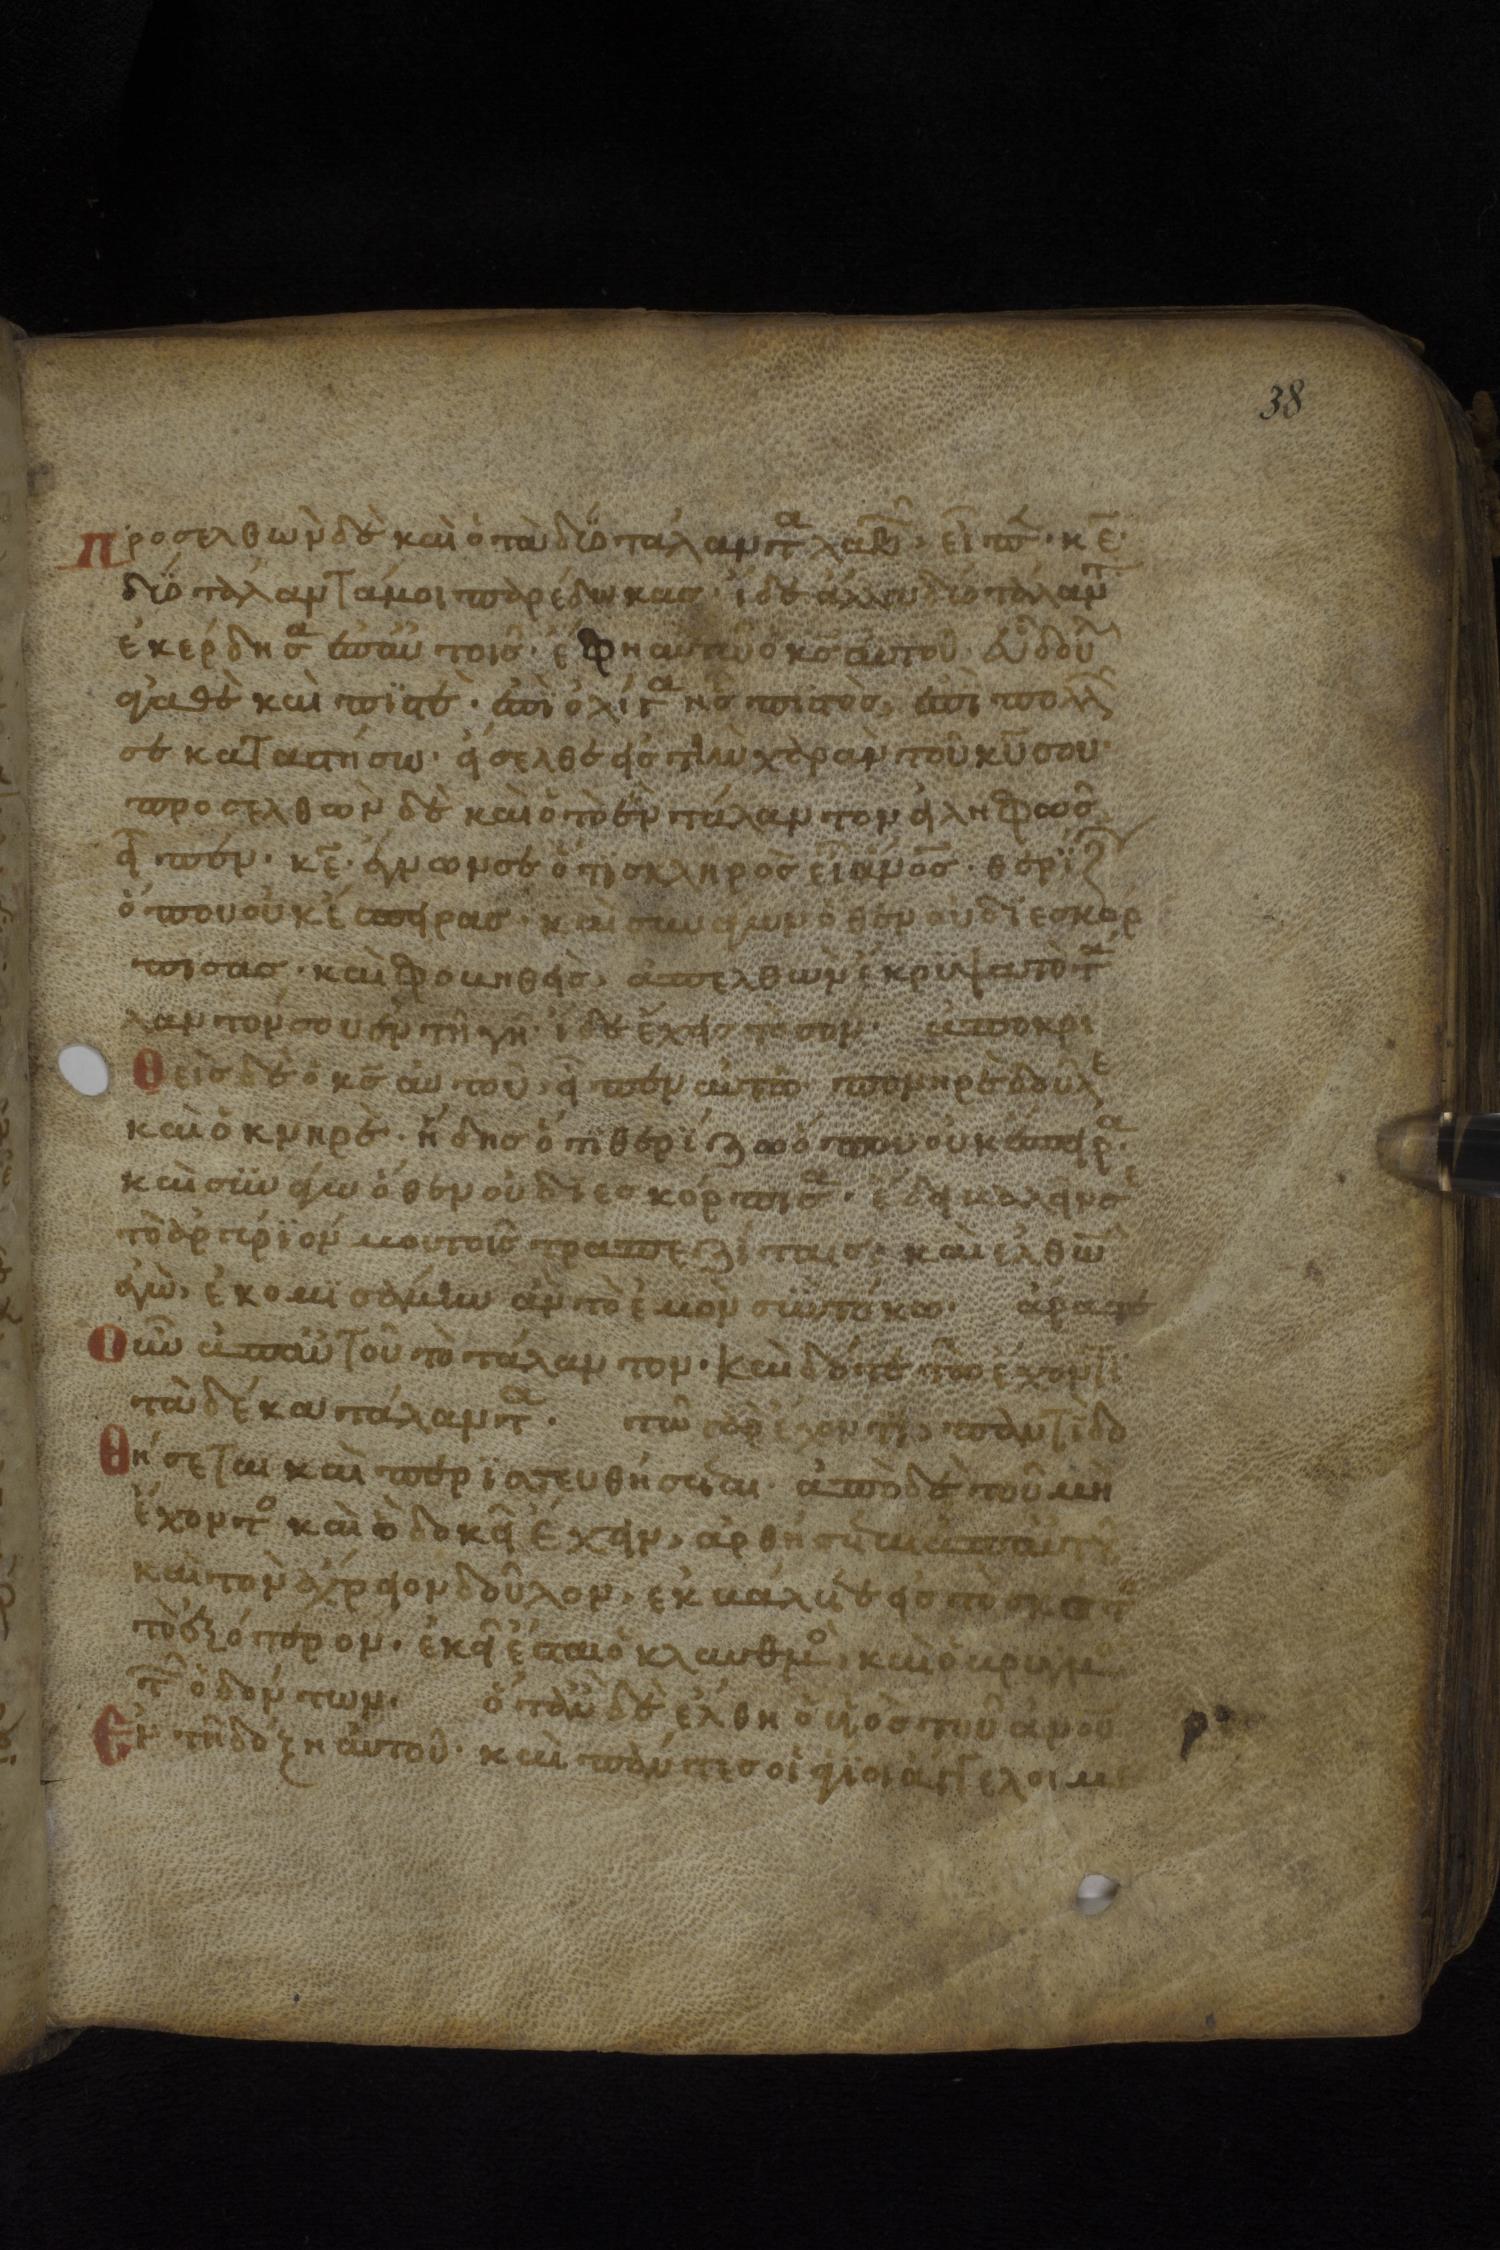 38
Προσελθὼν δὲ καὶ ὁ τὰ δύο τάλαντα λαβ εἶπε· κε·
δύο τάλαντά μοι παρέδωκας· ἴδε ἄλλα δύο τάλαντ
ἐκέρδησα ἐπ αὐτοῖς· ἔφη αὐτῶ ὁ κς αὐτοῦ· εὖ δοῦ
ἀγαθὲ καὶ πιστέ· ἐπὶ ὀλίγα ἦς πιστὸς, ἐπὶ πολλ
σε καταστήσω· εἴσελθε εἰς τὴν χαρὰν τοῦ κυ σου·
προσελθὼν δὲ καὶ ὁ τὸ ἓν τάλαντον εἰληφὼς
εἶπεν· κε· ἔγνων σε ὅτι σκληρὸς εἶ ανος· θερίζ
ὅπου οὐκ ἔσπειρας· καὶ συνάγων ὅθεν οὐ διεσκόρ
πισας· καὶ φοβηθεὶς, ἀπελθὼν ἔκρυψα τὸ τά
λαντόν σου ἐν τῆ γῆ· ἴδε ἔχεις τὸ σόν· ἀποκρι
θεὶς δὲ ὁ κς αὐτοῦ, εἶπεν αὐτῶ· πονηρὲ δοῦλε
καὶ ὀκνηρέ· ἤδης ὅτι θερίζω ὅπου οὐκ ἔσπειρα·
καὶ συνάγω ὅθεν οὐ διεσκόρπισα· ἔδει βαλεῖν σε
τὸ ἀργύριόν μου τοῖς τραπεζίταις· καὶ ἐλθὼν
ἐγὼ, ἐκομισάμην ἂν τὸ ἐμὸν σὺν τόκω· ἄρατε
οὖν ἀπ αὐτοῦ τὸ τάλαντον· καὶ δότε τῶ ἔχοντι
τὰ δέκα τάλαντα· τῶ γὰρ ἔχοντι, παντὶ δο
θήσεται καὶ περισσευθήσεται· ἀπὸ δὲ τοῦ μὴ
ἔχοντο καὶ ὃ δοκεῖ ἔχειν, ἀρθήσεται ἀπ αὐτοῦ
καὶ τὸν ἀχρεῖον δοῦλον, ἐκβάλετε εἰς τὸ σκοτ
τὸ ἐξώτερον· ἐκεῖ ἔσται ὁ κλαυθμο, καὶ ὁ βρυγμο
τ ὀδόντων· ὅταν δὲ ἔλθη ὁ υἱὸς τοῦ ανου
ἐν τῆ δόξη αὐτοῦ· καὶ πάντες οἱ ἅγιοι ἄγγελοι μ